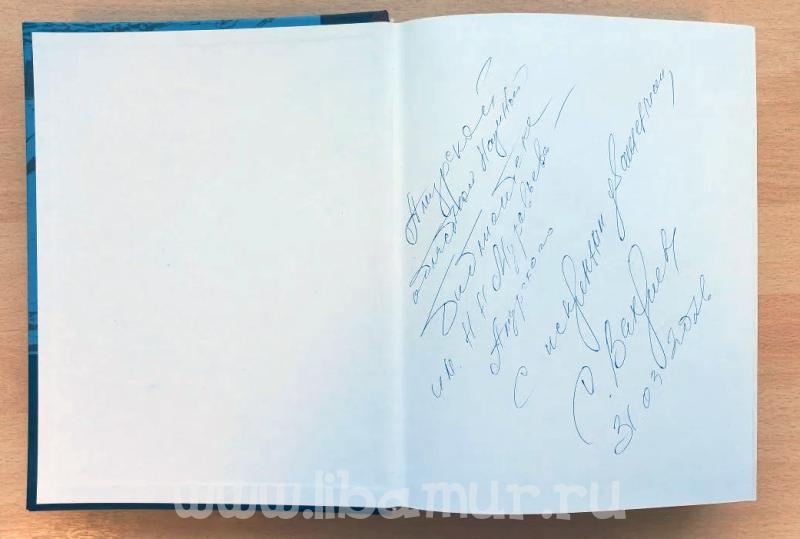 Амурской
областной научной
библиотеке
им. Н Н Муравьева –
Амурского
С искренним уважением,
С.
31 03 2026
www.libamur.ru